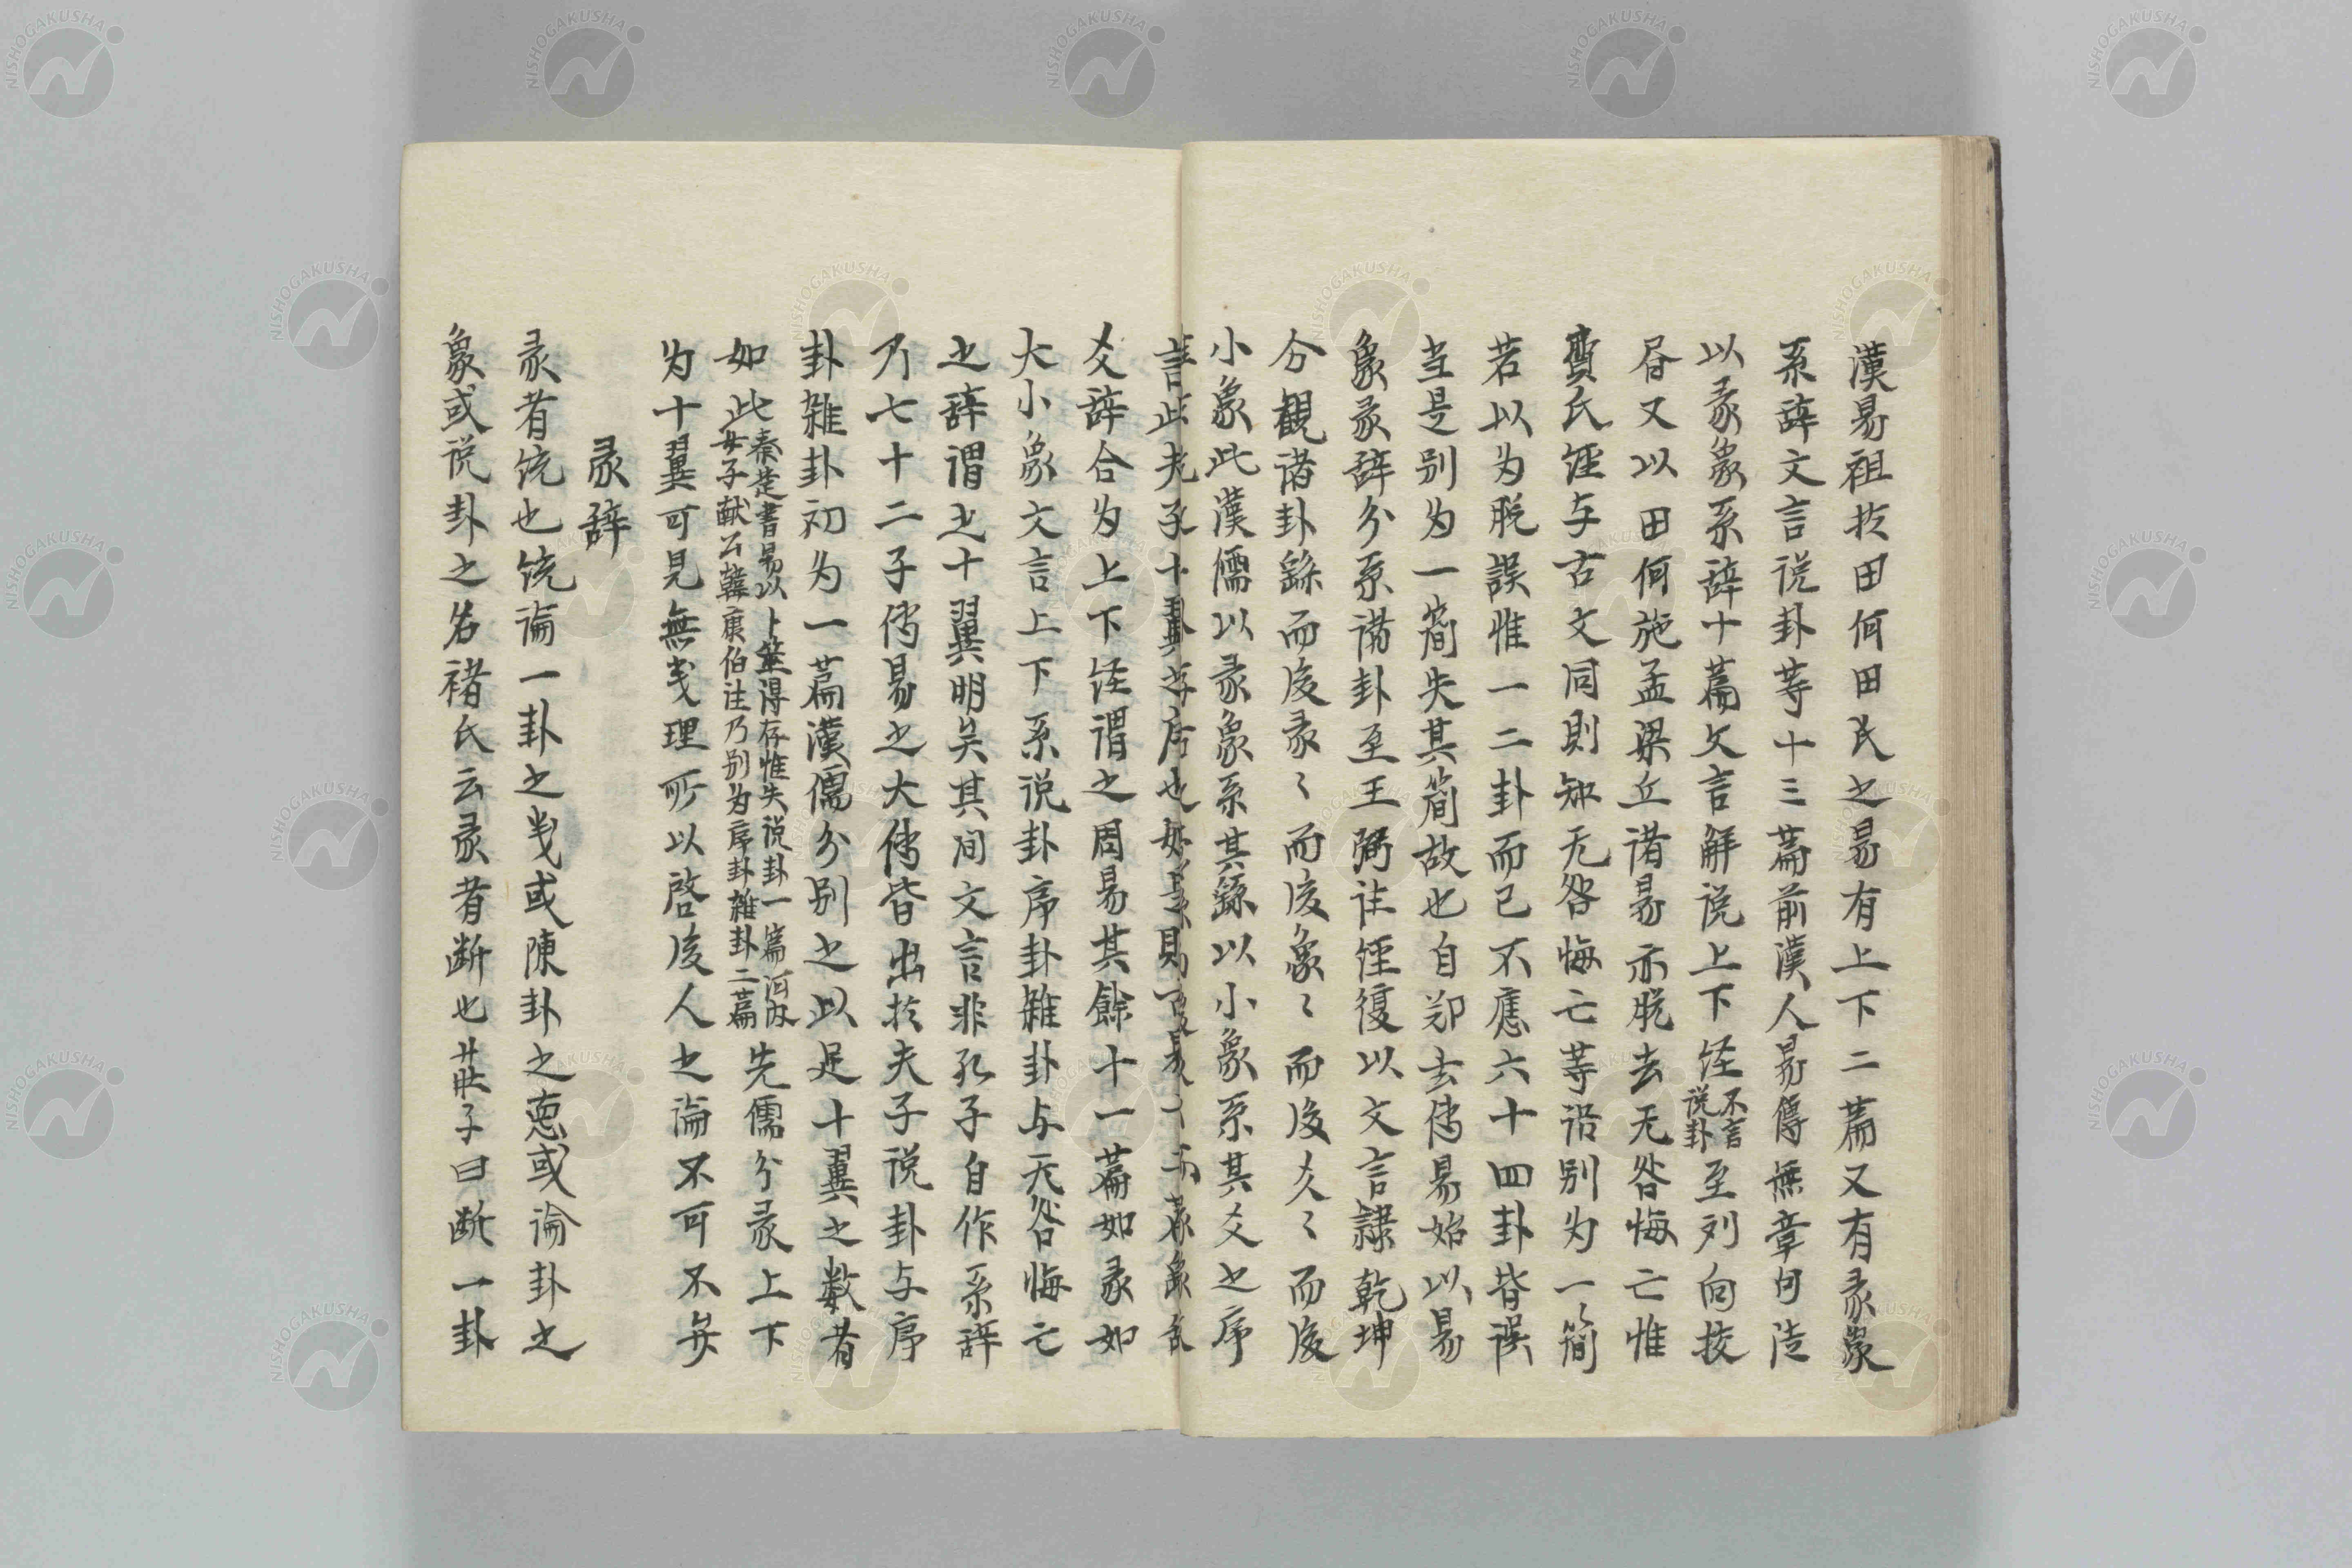 漢易祖於田何田氏之易有上下二篇又有彖象
系辞文言说卦等十三篇前漢人易傳無章句徒
以彖象系辞十篇文言解说上下经不言说卦至刘向挍
昏又以田何施孟梁丘诸易亦脱去无咎悔亡惟
費氏经与古文同則知无咎悔亡等语别为一简
若以为脱誤惟一二卦而已不應六十四卦皆误
当是别为一简失其简故也自郑去傳易始以易
象彖辞分系诸卦至王弼註经復以文言隷乾坤
分觀诸卦繇而後彖〻而後象〻而後爻〻而後
小象此漢儒以彖象系其繇以小象系其爻之序
言此先子十翼之序也
爻辞合为上下经谓之周易其餘十一篇如彖如
大小象文言上下系说卦序卦雜卦与无咎悔亡
之辞谓之十翼明矣其间文言非孔子自作系辞
乃七十二子傳易之大傳皆出於夫子说卦与序
卦雜卦初为一篇漢儒分别之以足十翼之数者
如此秦楚書易以卜筮得存惟失说卦一篇河内女子献公韓康伯註乃别为序卦雜卦二篇先儒分彖上下
为十翼可見無義理所以啓後人之論不可不弁
彖辞
彖者统也统論一卦之義或陳卦之惪或論卦之
象或说卦之名褚氏云彖者断也莊子曰断一卦